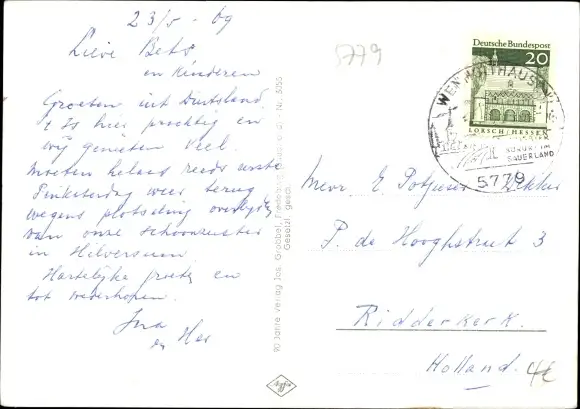 23/5 - 69
Lieve Bets
en Kinderen
Groeten uit Duitsland
't Is hier prachtig en
wij genieten veel.
Moeten helaas reeds eerste
Pinksterdag weer terug
wegens plotseling overlijden
van onze schoonzuster
in Hilversum.
Hartelijke groeten en
tot wederhopen.
Ina
en
5779
Deutsche Bundespost
20
LORSCH/HESSEN
KURORT IM
SAUERLAND
5779
Mevr. E. Dekker
P. de Hooghstraat 3
Ridderkerk.
Holland.
4€
90 Jahre Verlag Jos. Grobbel, Fredeburg
Gesetzl. gesch.